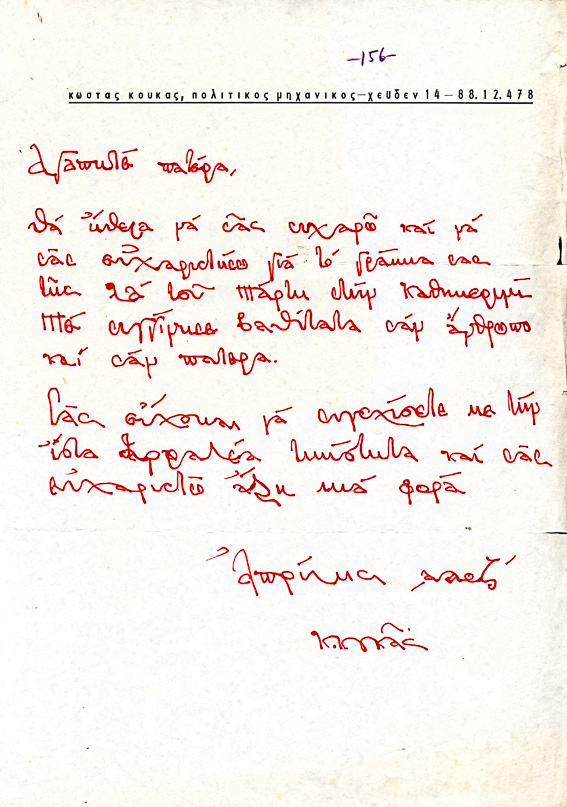 -156-
κωστας κουκας, πολιτικος μηχανικος–χεϋδεν 14–88.12.478
Ἀγαπητέ πατέρα,
θά ἤθελα νά σᾶς συχαρῶ καί νά
σᾶς εὐχαριστήσω γιά τό γράμμα σας
τῆς 24 τοῦ Μάρτη στήν Καθημερινή
Μέ συγγίνησε βαθύτατα σάν ἄνθρωπο
καί σάν πατέρα.
Σᾶς εὔχομαι νά συνεχίσετε με τήν
ἴδια θαρραλέα τιμιότητα καί σᾶς
εὐχαριστῶ ἄλλη μιά φορά
κ. κουκᾶς